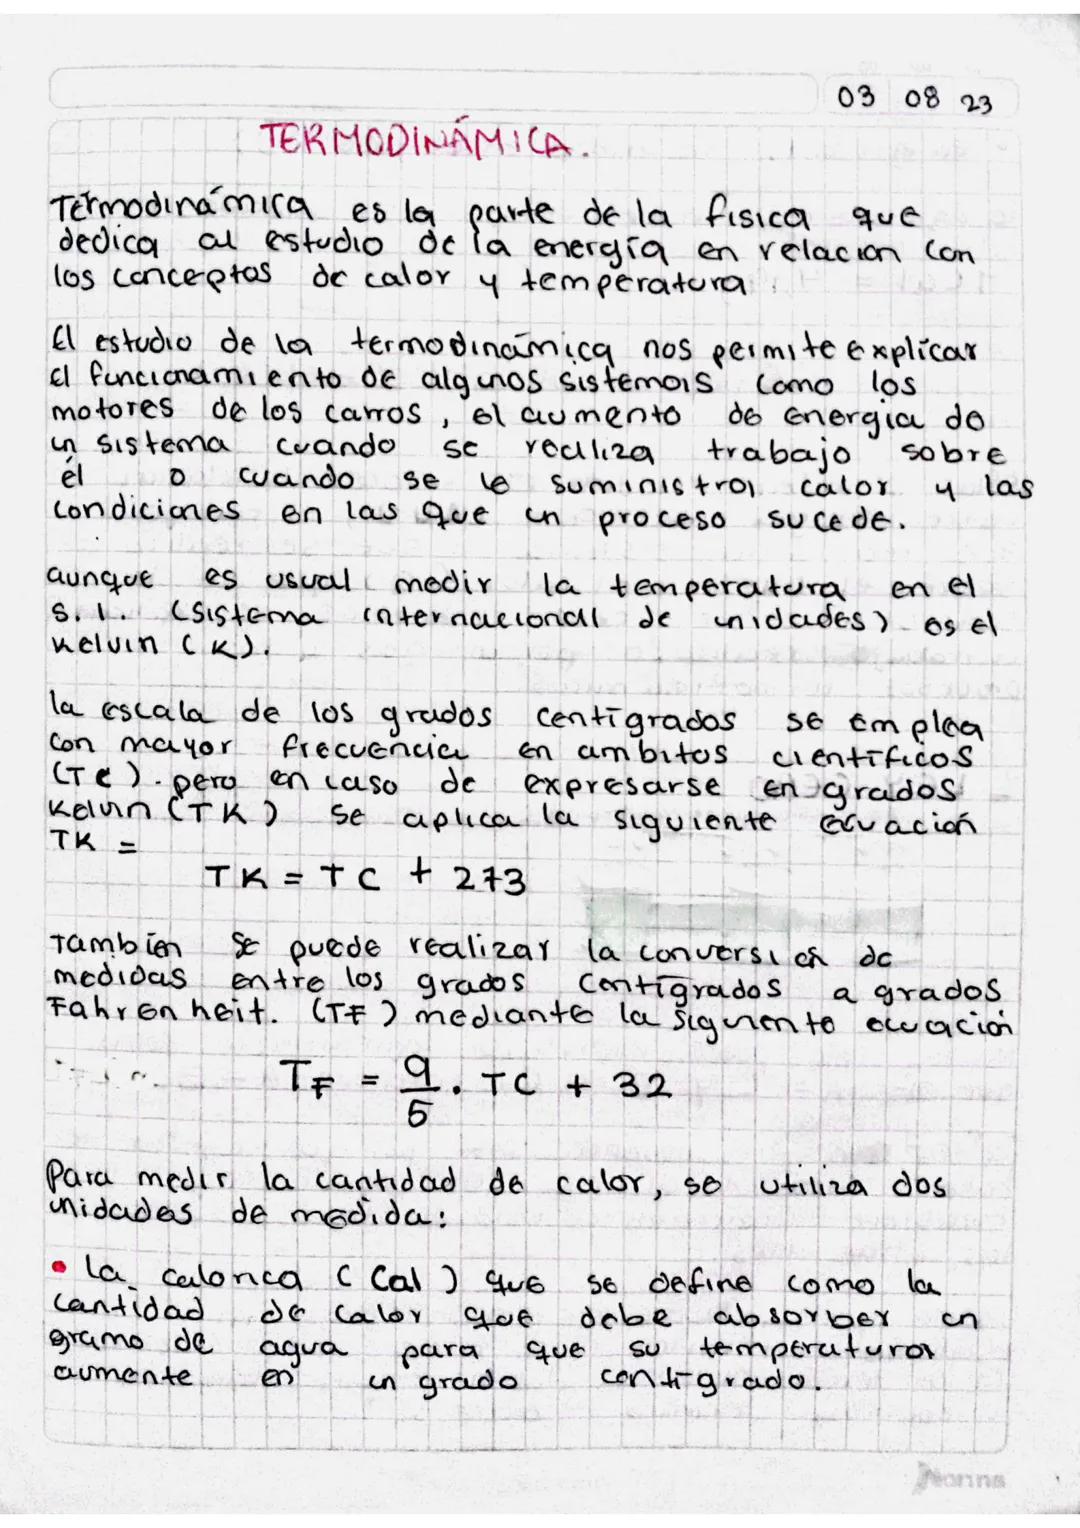 03 08 23
TERMODINÁMICA.
Termodinámica es la parte de la fisica que
dedica al estudio de la energía en relacion con
los conceptos de calor y temperatura.
El estudio de la termodinámica nos permite explicar
el funcionamiento de algunos sistemas como los
motores de los carros, el aumento de energia de
un sistema cuando se realiza trabajo sobre
él o cuando se le suministra calor y las
condiciones en las que un proceso sucede.
aunque es usual medir la temperatura en el
S.I. (Sistema internacional de unidades) es el
Kelvin (K).
la escala de los grados centígrados se emplea
con mayor frecuencia en ambitos científicos
(Tc). pero en caso de expresarse en grados
Kelvin (TK) se aplica la siguiente ecuación
TK =
TK = TC + 273
También se puede realizar la conversión de
medidas entre los grados Centígrados a grados
Fahrenheit. (TF) mediante la siguiente ecuación
TF = 9/5 . TC + 32
Para medir la cantidad de calor, se utiliza dos
unidades de medida:
• la caloria (Cal) que se define como la
cantidad de calor que debe absorber un
gramo de agua para que su temperatura
aumente en un grado centígrado.
Norma